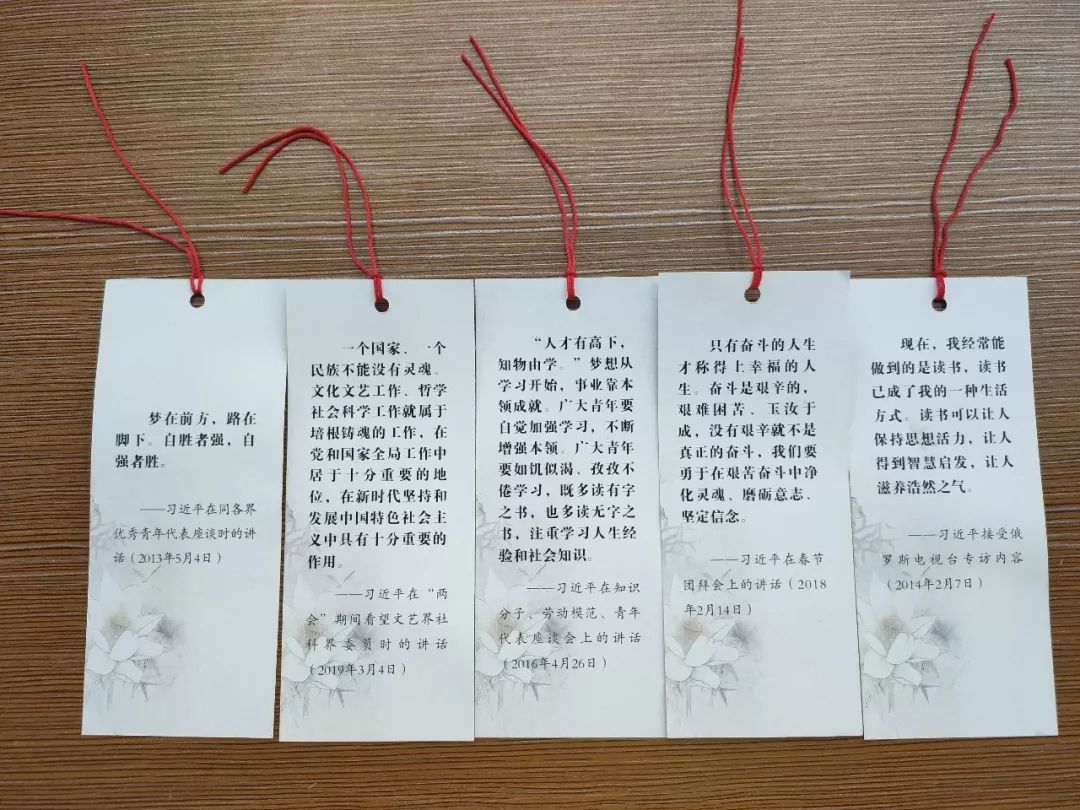 梦在前方，路在
脚下。自胜者强，自
强者胜。
——习近平在同各界
优秀青年代表座谈时的讲
话（2013年5月4日）
一个国家、一个
民族不能没有灵魂。
文化文艺工作、哲学
社会科学工作就属于
培根铸魂的工作，在
党和国家全局工作中
居于十分重要的地
位，在新时代坚持和
发展中国特色社会主
义中具有十分重要的
作用。
——习近平在“两
会”期间看望文艺界社
科界委员时的讲话
（2019年3月4日）
“人才有高下，
知物由学。”梦想从
学习开始，事业靠本
领成就。广大青年要
自觉加强学习，不断
增强本领。广大青年
要如饥似渴、孜孜不
倦学习，既多读有字
之书，也多读无字之
书，注重学习人生经
验和社会知识。
——习近平在知识
分子、劳动模范、青年
代表座谈会上的讲话
（2016年4月26日）
只有奋斗的人生
才称得上幸福的人
生。奋斗是艰辛的，
艰难困苦、玉汝于
成，没有艰辛就不是
真正的奋斗，我们要
勇于在艰苦奋斗中净
化灵魂、磨砺意志、
坚定信念。
——习近平在春节
团拜会上的讲话（2018
年2月14日）
现在，我经常能
做到的是读书，读书
已成了我的一种生活
方式。读书可以让人
保持思想活力，让人
得到智慧启发，让人
滋养浩然之气。
——习近平接受俄
罗斯电视台专访内容
（2014年2月7日）